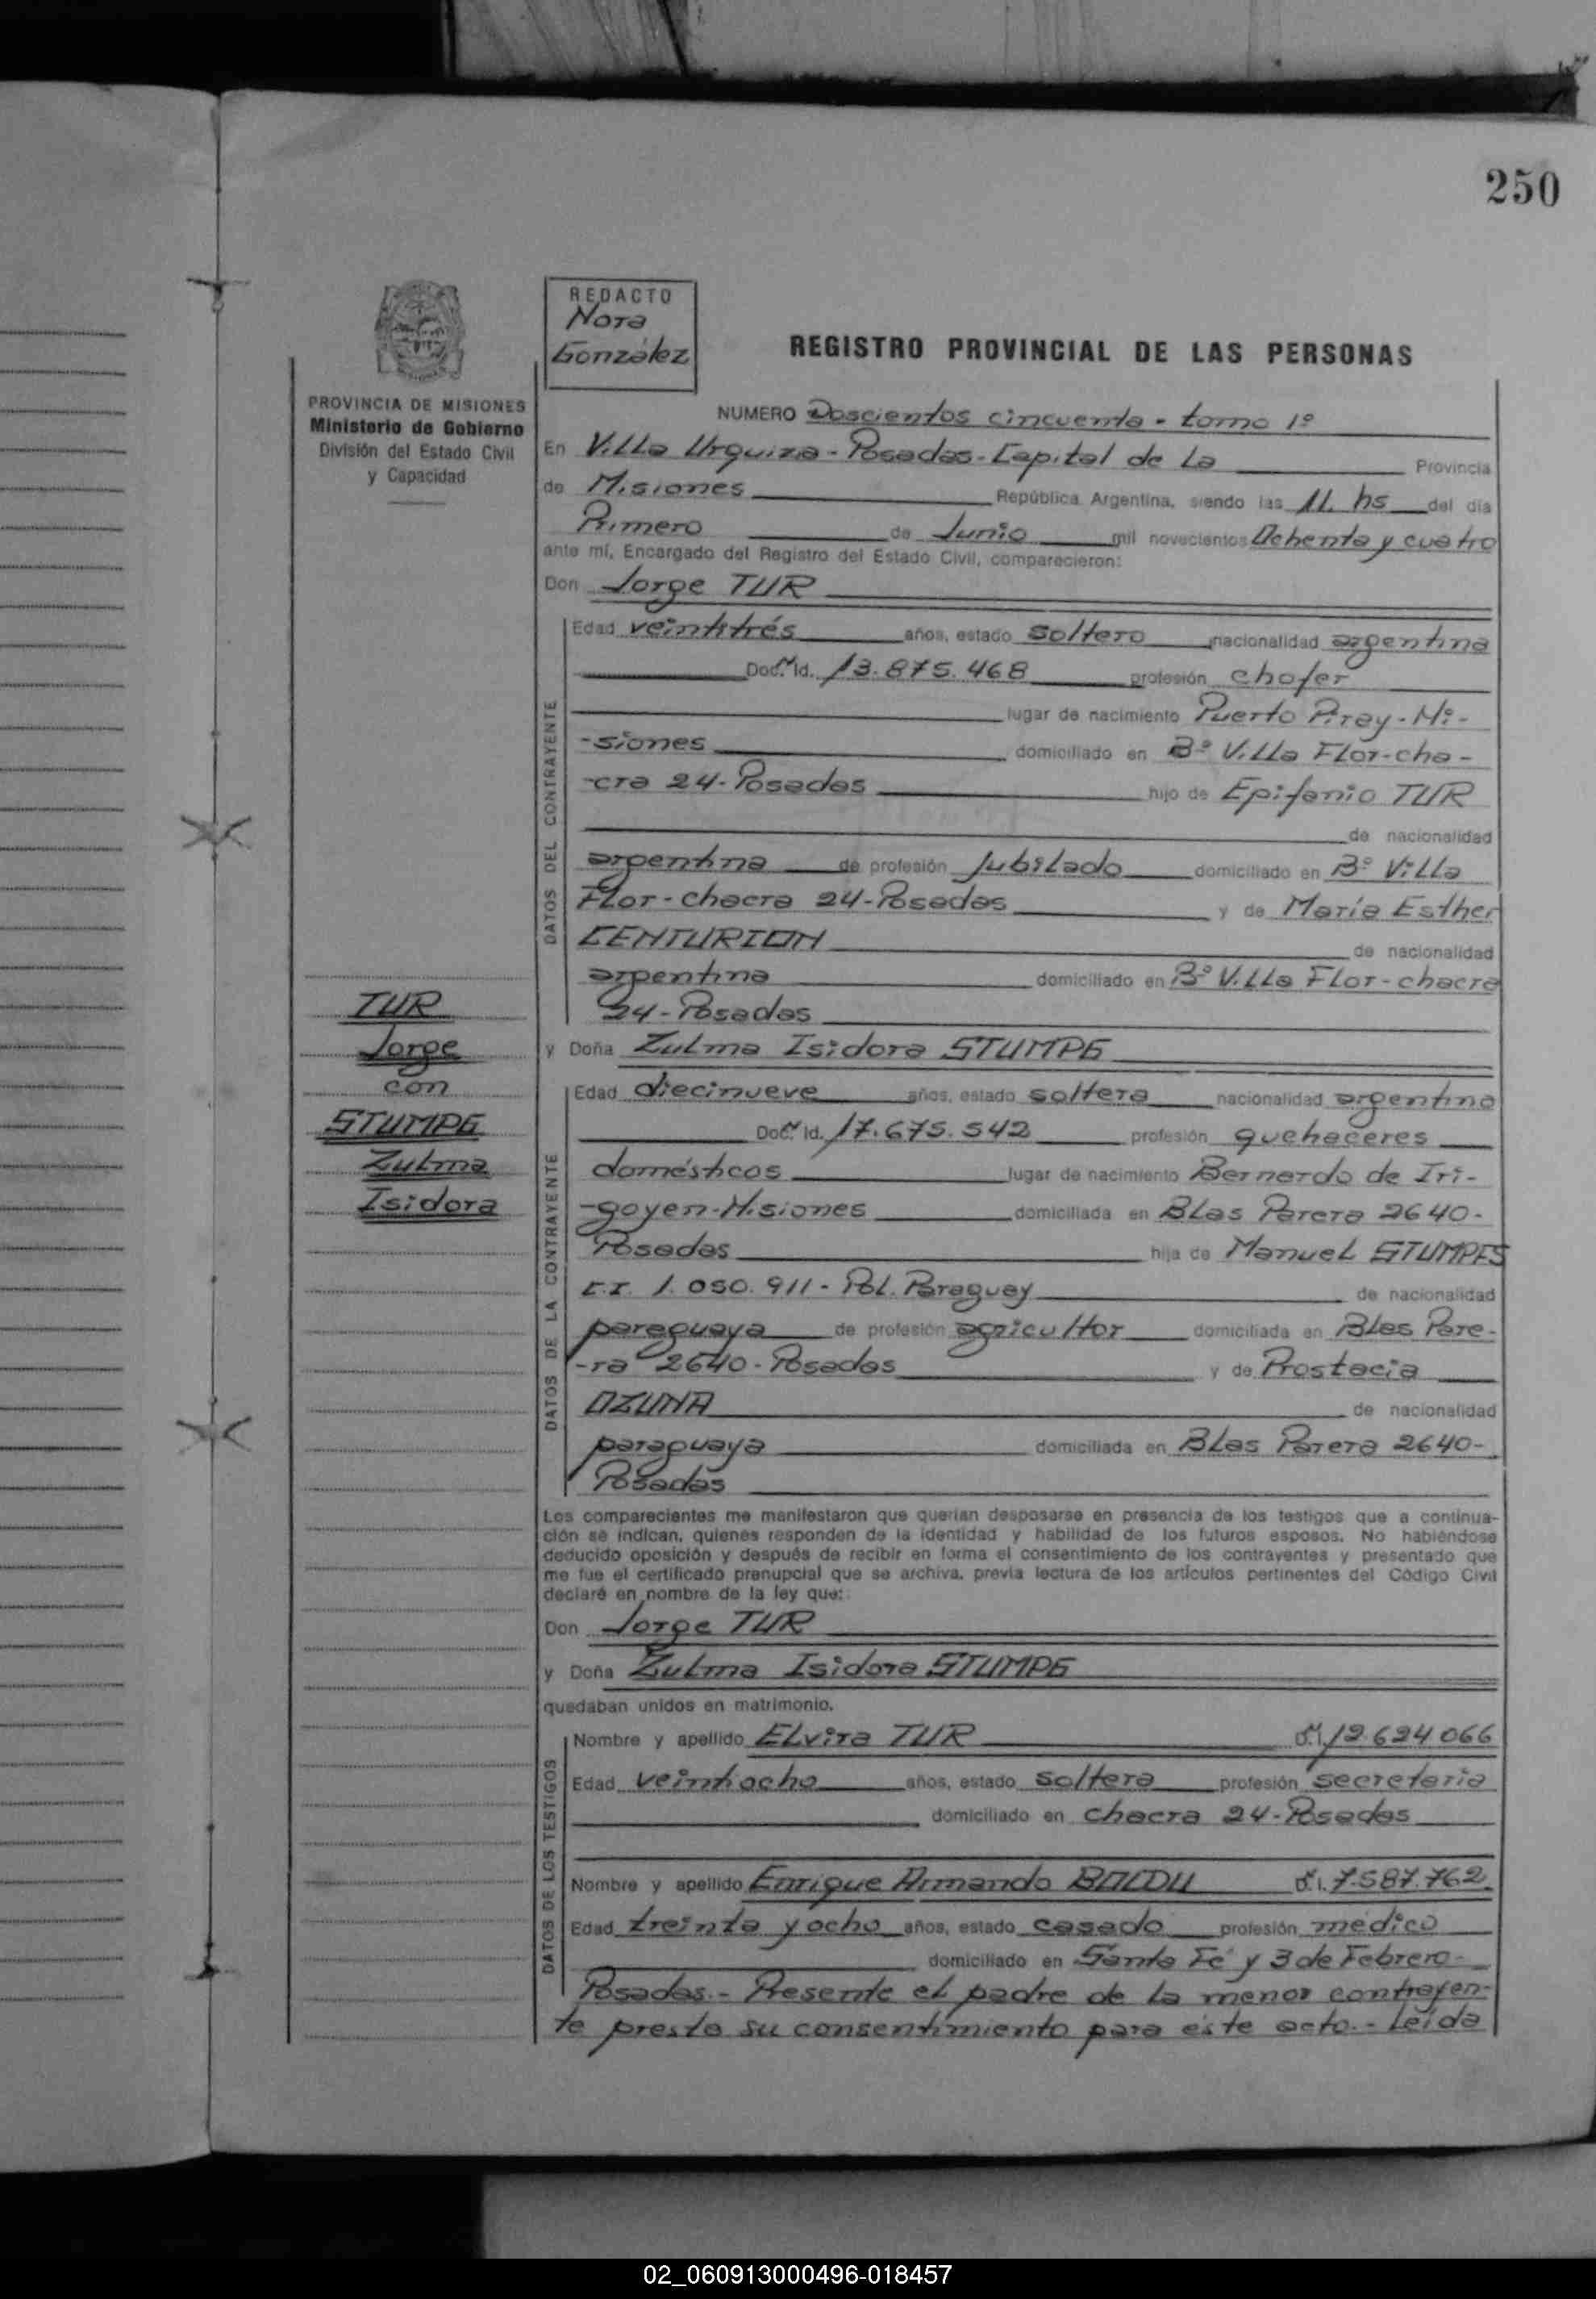 250
REDACTO
Nora
González
REGISTRO PROVINCIAL DE LAS PERSONAS
PROVINCIA DE MISIONES
Ministerio de Gobierno
División del Estado Civil
y Capacidad
NUMERO Doscientos cincuenta - tomo 1º
En Villa Urquiza - Posadas - Capital de La Provincia
de Misiones República Argentina, siendo las 11 hs del día
Primero de Junio mil novecientos Ochenta y cuatro
ante mí, Encargado del Registro del Estado Civil, comparecieron:
Don Jorge TUR
DATOS DEL CONTRAYENTE
Edad veintitrés años, estado soltero nacionalidad argentina
Doc. Id. 13.875.468 profesión chofer
lugar de nacimiento Puerto Piray - Mi-
-siones domiciliado en Bº Villa Flor - cha-
-cra 24 - Posadas hijo de Epifanio TUR
de nacionalidad
argentina de profesión Jubilado domiciliado en Bº Villa
Flor - chacra 24 - Posadas y de María Esther
CENTURION de nacionalidad
argentina domiciliado en Bº Villa Flor - chacra
24 - Posadas
TUR
Jorge
con
STUMPG
Zulma
Isidora
y Doña Zulma Isidora STUMPG
DATOS DE LA CONTRAYENTE
Edad diecinueve años, estado soltera nacionalidad argentina
Doc. Id. 17.675.542 profesión quehaceres
domésticos lugar de nacimiento Bernardo de Iri-
-goyen - Misiones domiciliada en Blas Parera 2640 -
Posadas hija de Manuel STUMPFS
C.I. 1.050.911 - Pol. Paraguay de nacionalidad
paraguaya de profesión agricultor domiciliada en Blas Pare-
-ra 2640 - Posadas y de Prostacia
OZUNA de nacionalidad
paraguaya domiciliada en Blas Parera 2640 -
Posadas
Los comparecientes me manifestaron que querían desposarse en presencia de los testigos que a continua-
ción se indican, quienes responden de la identidad y habilidad de los futuros esposos. No habiéndose
deducido oposición y después de recibir en forma el consentimiento de los contrayentes y presentado que
me fue el certificado prenupcial que se archiva, previa lectura de los artículos pertinentes del Código Civil
declaré en nombre de la ley que:
Don Jorge TUR
y Doña Zulma Isidora STUMPG
quedaban unidos en matrimonio.
DATOS DE LOS TESTIGOS
Nombre y apellido Elvira TUR 12.624.066
Edad veintiocho años, estado soltera profesión secretaria
domiciliado en chacra 24 - Posadas
Nombre y apellido Enrique Armando BOLDU 7.587.762
Edad treinta y ocho años, estado casado profesión médico
domiciliado en Santa Fé y 3 de Febrero -
Posadas. - Presente el padre de la menor contrayen-
te presta su consentimiento para éste acto. - Leída
02_060913000496-018457